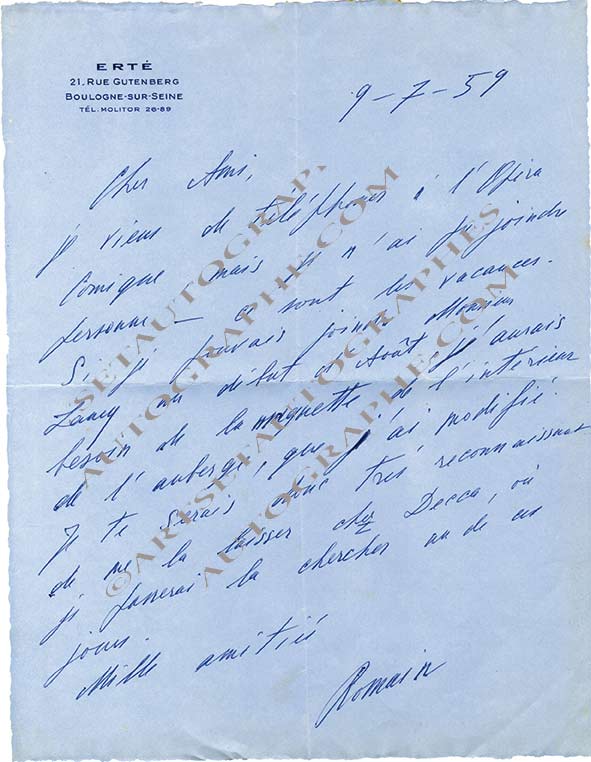 ERTÉ
21, RUE GUTENBERG
BOULOGNE-SUR-SEINE
TÉL. MOLITOR 26-89
9-7-59
Cher Ami,
je viens de téléphoner à l'Opéra
Comique mais je n'ai pu joindre
personne — ce sont les vacances.
Si je pouvais joindre Monsieur
Lamy au début d'Août j'aurais
besoin de la maquette de l'intérieur
de l'auberge, que j'ai modifié.
Je te serais donc très reconnaissant
de me la laisser chez Decca, où
je passerai la chercher un de ces
jours.
Mille amitiés
Romain
©ARTSETAUTOGRAPHES
AUTOGRAPHE.COM